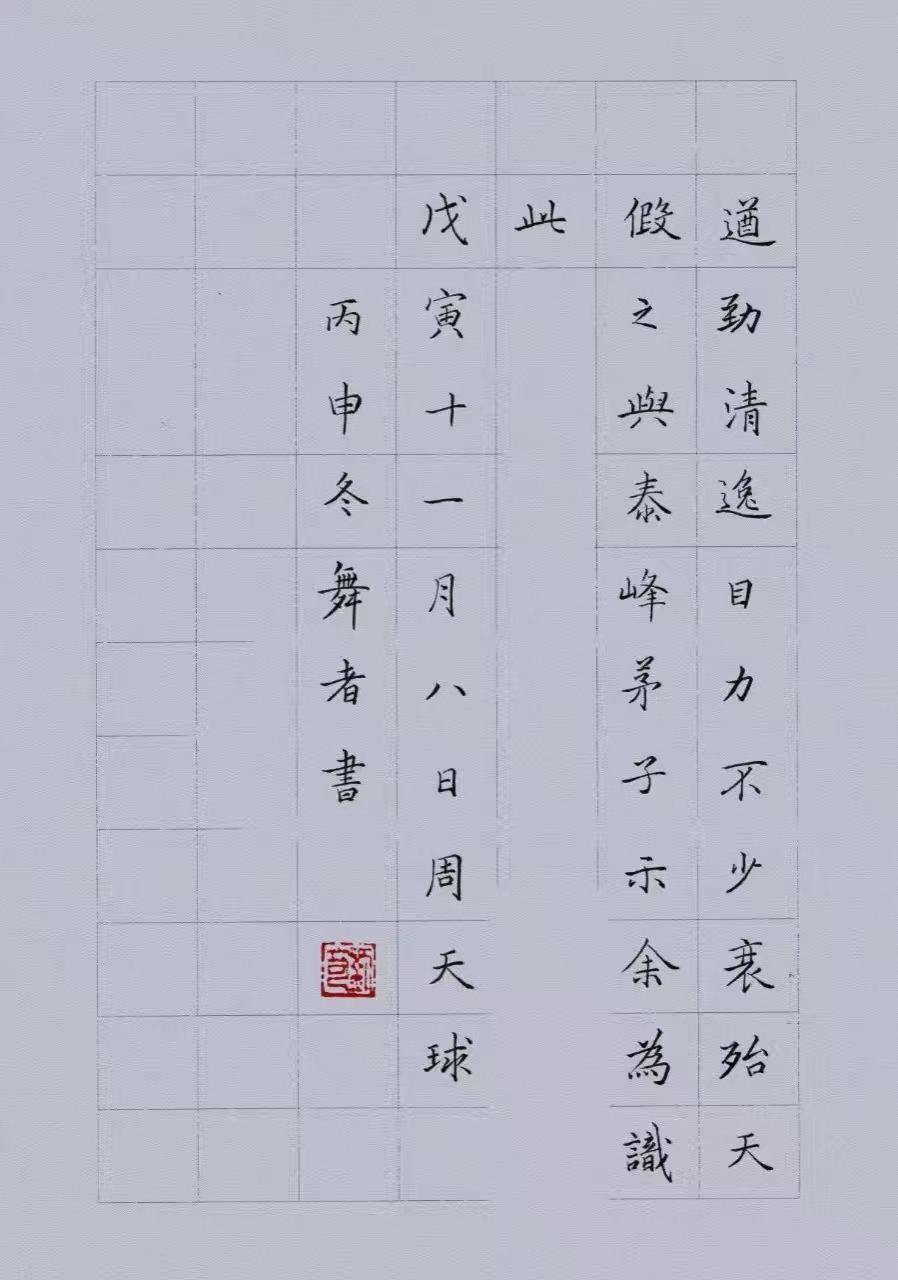 遒勁清逸目力不少衰殆天
假之與泰峰茅子示余為識
此
戊寅十一月八日周天球
丙申冬舞者書